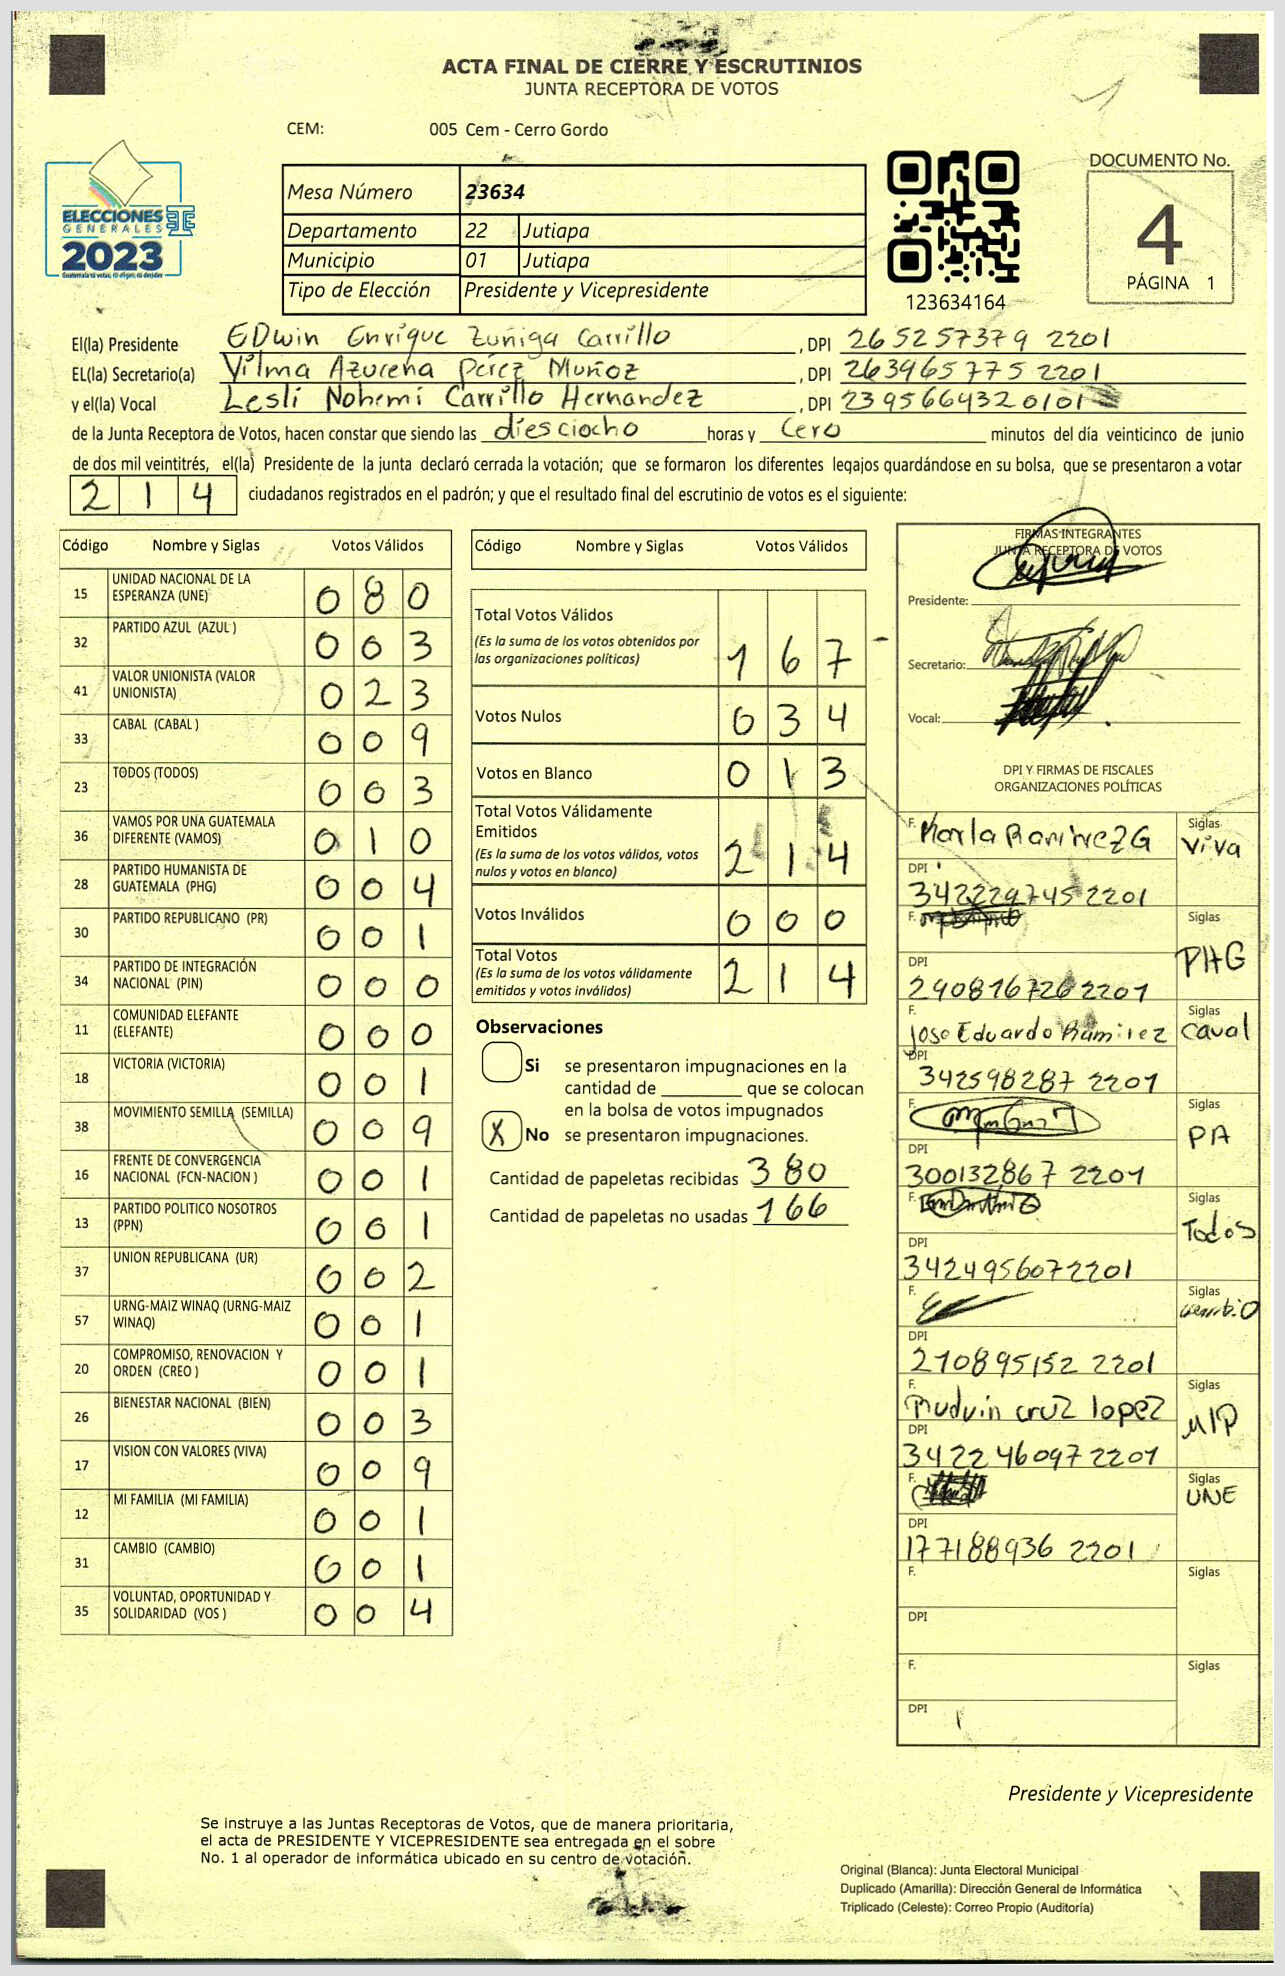 ACTA FINAL DE CIERRE Y ESCRUTINIOS
JUNTA RECEPTORA DE VOTOS
CEM: 005 Cem - Cerro Gordo
ELECCIONES
GENERALES
2023
Mesa Número 23634
Departamento 22 Jutiapa
Municipio 01 Jutiapa
Tipo de Elección Presidente y Vicepresidente
123634164
DOCUMENTO No.
4
PÁGINA 1
El(la) Presidente EDwin Enrique Zuñiga Carrillo , DPI 265257379 2201
EL(la) Secretario(a) Vilma Azucena Pérez Muñoz , DPI 263965775 2201
y el(la) Vocal Lesli Nohemi Carrillo Hernandez , DPI 2395664320101
de la Junta Receptora de Votos, hacen constar que siendo las diesciocho horas y cero minutos del día veinticinco de junio
de dos mil veintitrés, el(la) Presidente de la junta declaró cerrada la votación; que se formaron los diferentes legajos guardándose en su bolsa, que se presentaron a votar
214 ciudadanos registrados en el padrón; y que el resultado final del escrutinio de votos es el siguiente:
Código Nombre y Siglas Votos Válidos
15 UNIDAD NACIONAL DE LA ESPERANZA (UNE) 080
32 PARTIDO AZUL (AZUL ) 003
41 VALOR UNIONISTA (VALOR UNIONISTA) 023
33 CABAL (CABAL ) 009
23 TODOS (TODOS) 003
36 VAMOS POR UNA GUATEMALA DIFERENTE (VAMOS) 010
28 PARTIDO HUMANISTA DE GUATEMALA (PHG) 004
30 PARTIDO REPUBLICANO (PR) 001
34 PARTIDO DE INTEGRACIÓN NACIONAL (PIN) 000
11 COMUNIDAD ELEFANTE (ELEFANTE) 000
18 VICTORIA (VICTORIA) 001
38 MOVIMIENTO SEMILLA (SEMILLA) 009
16 FRENTE DE CONVERGENCIA NACIONAL (FCN-NACION ) 001
13 PARTIDO POLITICO NOSOTROS (PPN) 001
37 UNION REPUBLICANA (UR) 002
57 URNG-MAIZ WINAQ (URNG-MAIZ WINAQ) 001
20 COMPROMISO, RENOVACION Y ORDEN (CREO ) 001
26 BIENESTAR NACIONAL (BIEN) 003
17 VISION CON VALORES (VIVA) 009
12 MI FAMILIA (MI FAMILIA) 001
31 CAMBIO (CAMBIO) 001
35 VOLUNTAD, OPORTUNIDAD Y SOLIDARIDAD (VOS ) 004
Código Nombre y Siglas Votos Válidos
Total Votos Válidos
(Es la suma de los votos obtenidos por
las organizaciones políticas) 167
Votos Nulos 034
Votos en Blanco 013
Total Votos Válidamente
Emitidos
(Es la suma de los votos válidos, votos
nulos y votos en blanco) 214
Votos Inválidos 000
Total Votos
(Es la suma de los votos válidamente
emitidos y votos inválidos) 214
Observaciones
Si se presentaron impugnaciones en la
cantidad de ________ que se colocan
en la bolsa de votos impugnados
X No se presentaron impugnaciones.
Cantidad de papeletas recibidas 380
Cantidad de papeletas no usadas 166
FIRMAS INTEGRANTES
JUNTA RECEPTORA DE VOTOS
Presidente:
Secretario:
Vocal:
DPI Y FIRMAS DE FISCALES
ORGANIZACIONES POLÍTICAS
F. Karla Ramirez G Siglas Viva
DPI 342229745 2201
F. Siglas PHG
DPI 290816726 2201
F. Jose Eduardo Ramirez Siglas Caval
DPI 342598287 2201
F. Siglas PA
DPI 300132867 2201
F. Siglas Todos
DPI 342495607 2201
F. Siglas
DPI 210895152 2201
F. Ruduin cruz lopez Siglas MIP
DPI 342246097 2201
F. Siglas UNE
DPI 177188936 2201
F. Siglas
DPI
F. Siglas
DPI
Presidente y Vicepresidente
Se instruye a las Juntas Receptoras de Votos, que de manera prioritaria,
el acta de PRESIDENTE Y VICEPRESIDENTE sea entregada en el sobre
No. 1 al operador de informática ubicado en su centro de votación.
Original (Blanca): Junta Electoral Municipal
Duplicado (Amarilla): Dirección General de Informática
Triplicado (Celeste): Correo Propio (Auditoría)